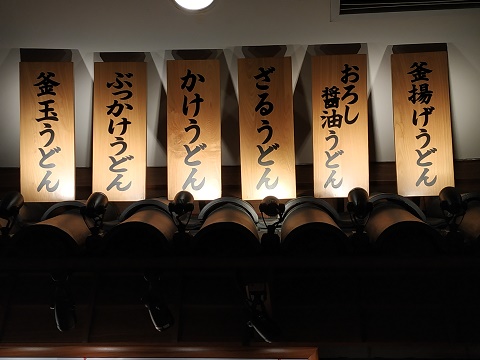 釜揚げうどん
おろし
醤油うどん
ざるうどん
かけうどん
ぶっかけうどん
釜玉うどん